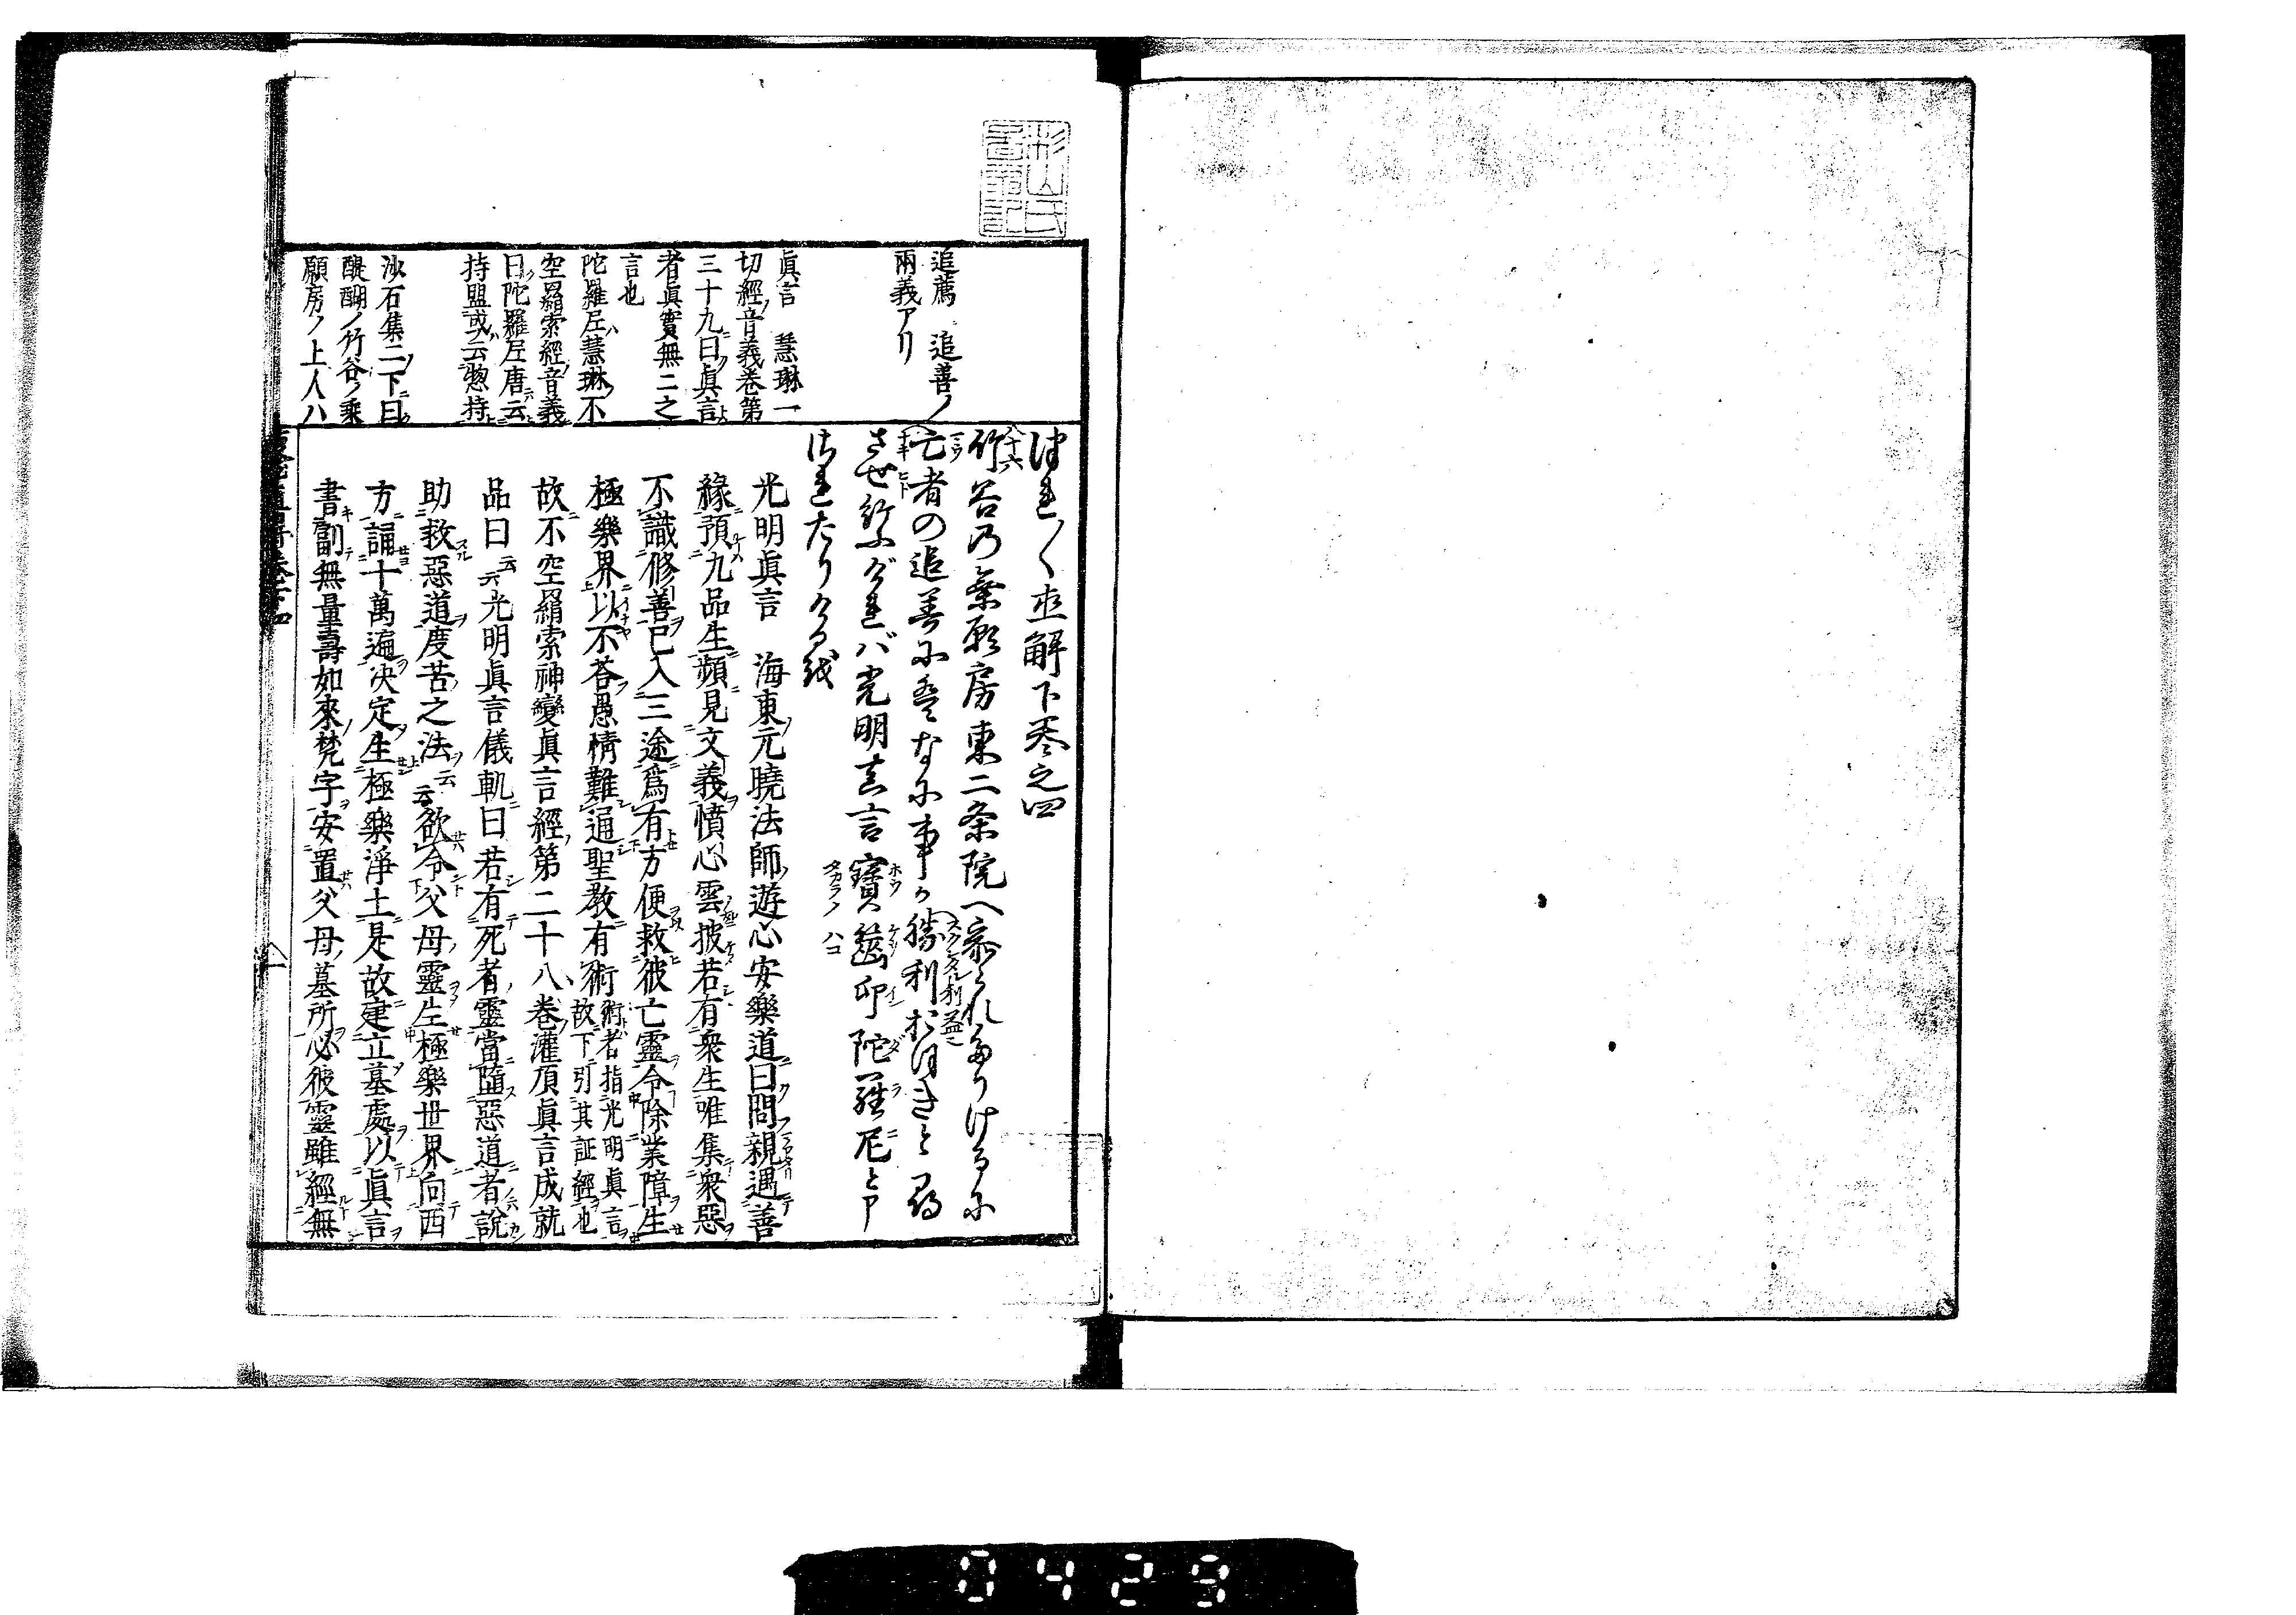 追薦 追善ノ
兩義アリ
眞言 慧琳一
切經音義卷第
三十九曰眞言
者眞實無二之
言也
陀羅尼ハ慧琳不
空羂索經音義
曰陀羅尼唐云
持盟或云惣持
沙石集二下曰
醍醐ノ竹谷ノ乘
願房ノ上人ハ
つれ〱直解下巻之四
竹谷乃乗願房東二条院へ参られたりけるに
亡者の追善にはなに事か勝利おほきと尋
させ給ふければ光明真言寶篋印陀羅尼と申
されたりけるを
光明眞言 海東元曉法師遊心安樂道曰問親遇善
緣預九品生頻見文義憤心雲披若有衆生唯集衆惡
不識修善已入三途爲有方便救彼亡靈令除業障生
極樂界以不答愚情難通聖教有術術者指光明眞言故下引其証經也
故不空羂索神變眞言經第二十八卷灌頂眞言成就
品曰云云光明眞言儀軌曰若有死者靈當墮惡道者說
助救惡道度苦之法云云欲令父母靈生極樂世界向西
方誦十萬遍決定生極樂淨土是故建立墓處以眞言
書副無量壽如來梵字安置父母墓所必彼靈雖經無